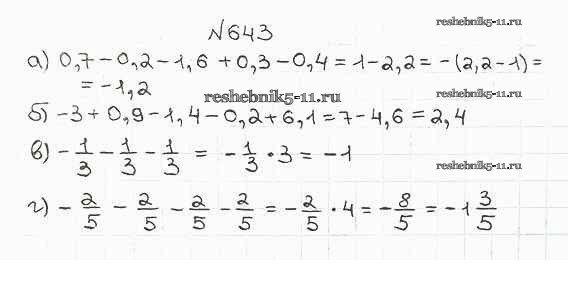 №643
reshebnik5-11.ru
а) 0,7 - 0,2 - 1,6 + 0,3 - 0,4 = 1 - 2,2 = -(2,2 - 1) =
= -1,2
reshebnik5-11.ru
reshebnik5-11.ru
б) -3 + 0,9 - 1,4 - 0,2 + 6,1 = 7 - 4,6 = 2,4
в) -1/3 - 1/3 - 1/3 = -1/3 • 3 = -1
reshebnik5-11.ru
г) -2/5 - 2/5 - 2/5 - 2/5 = -2/5 • 4 = -8/5 = -1 3/5